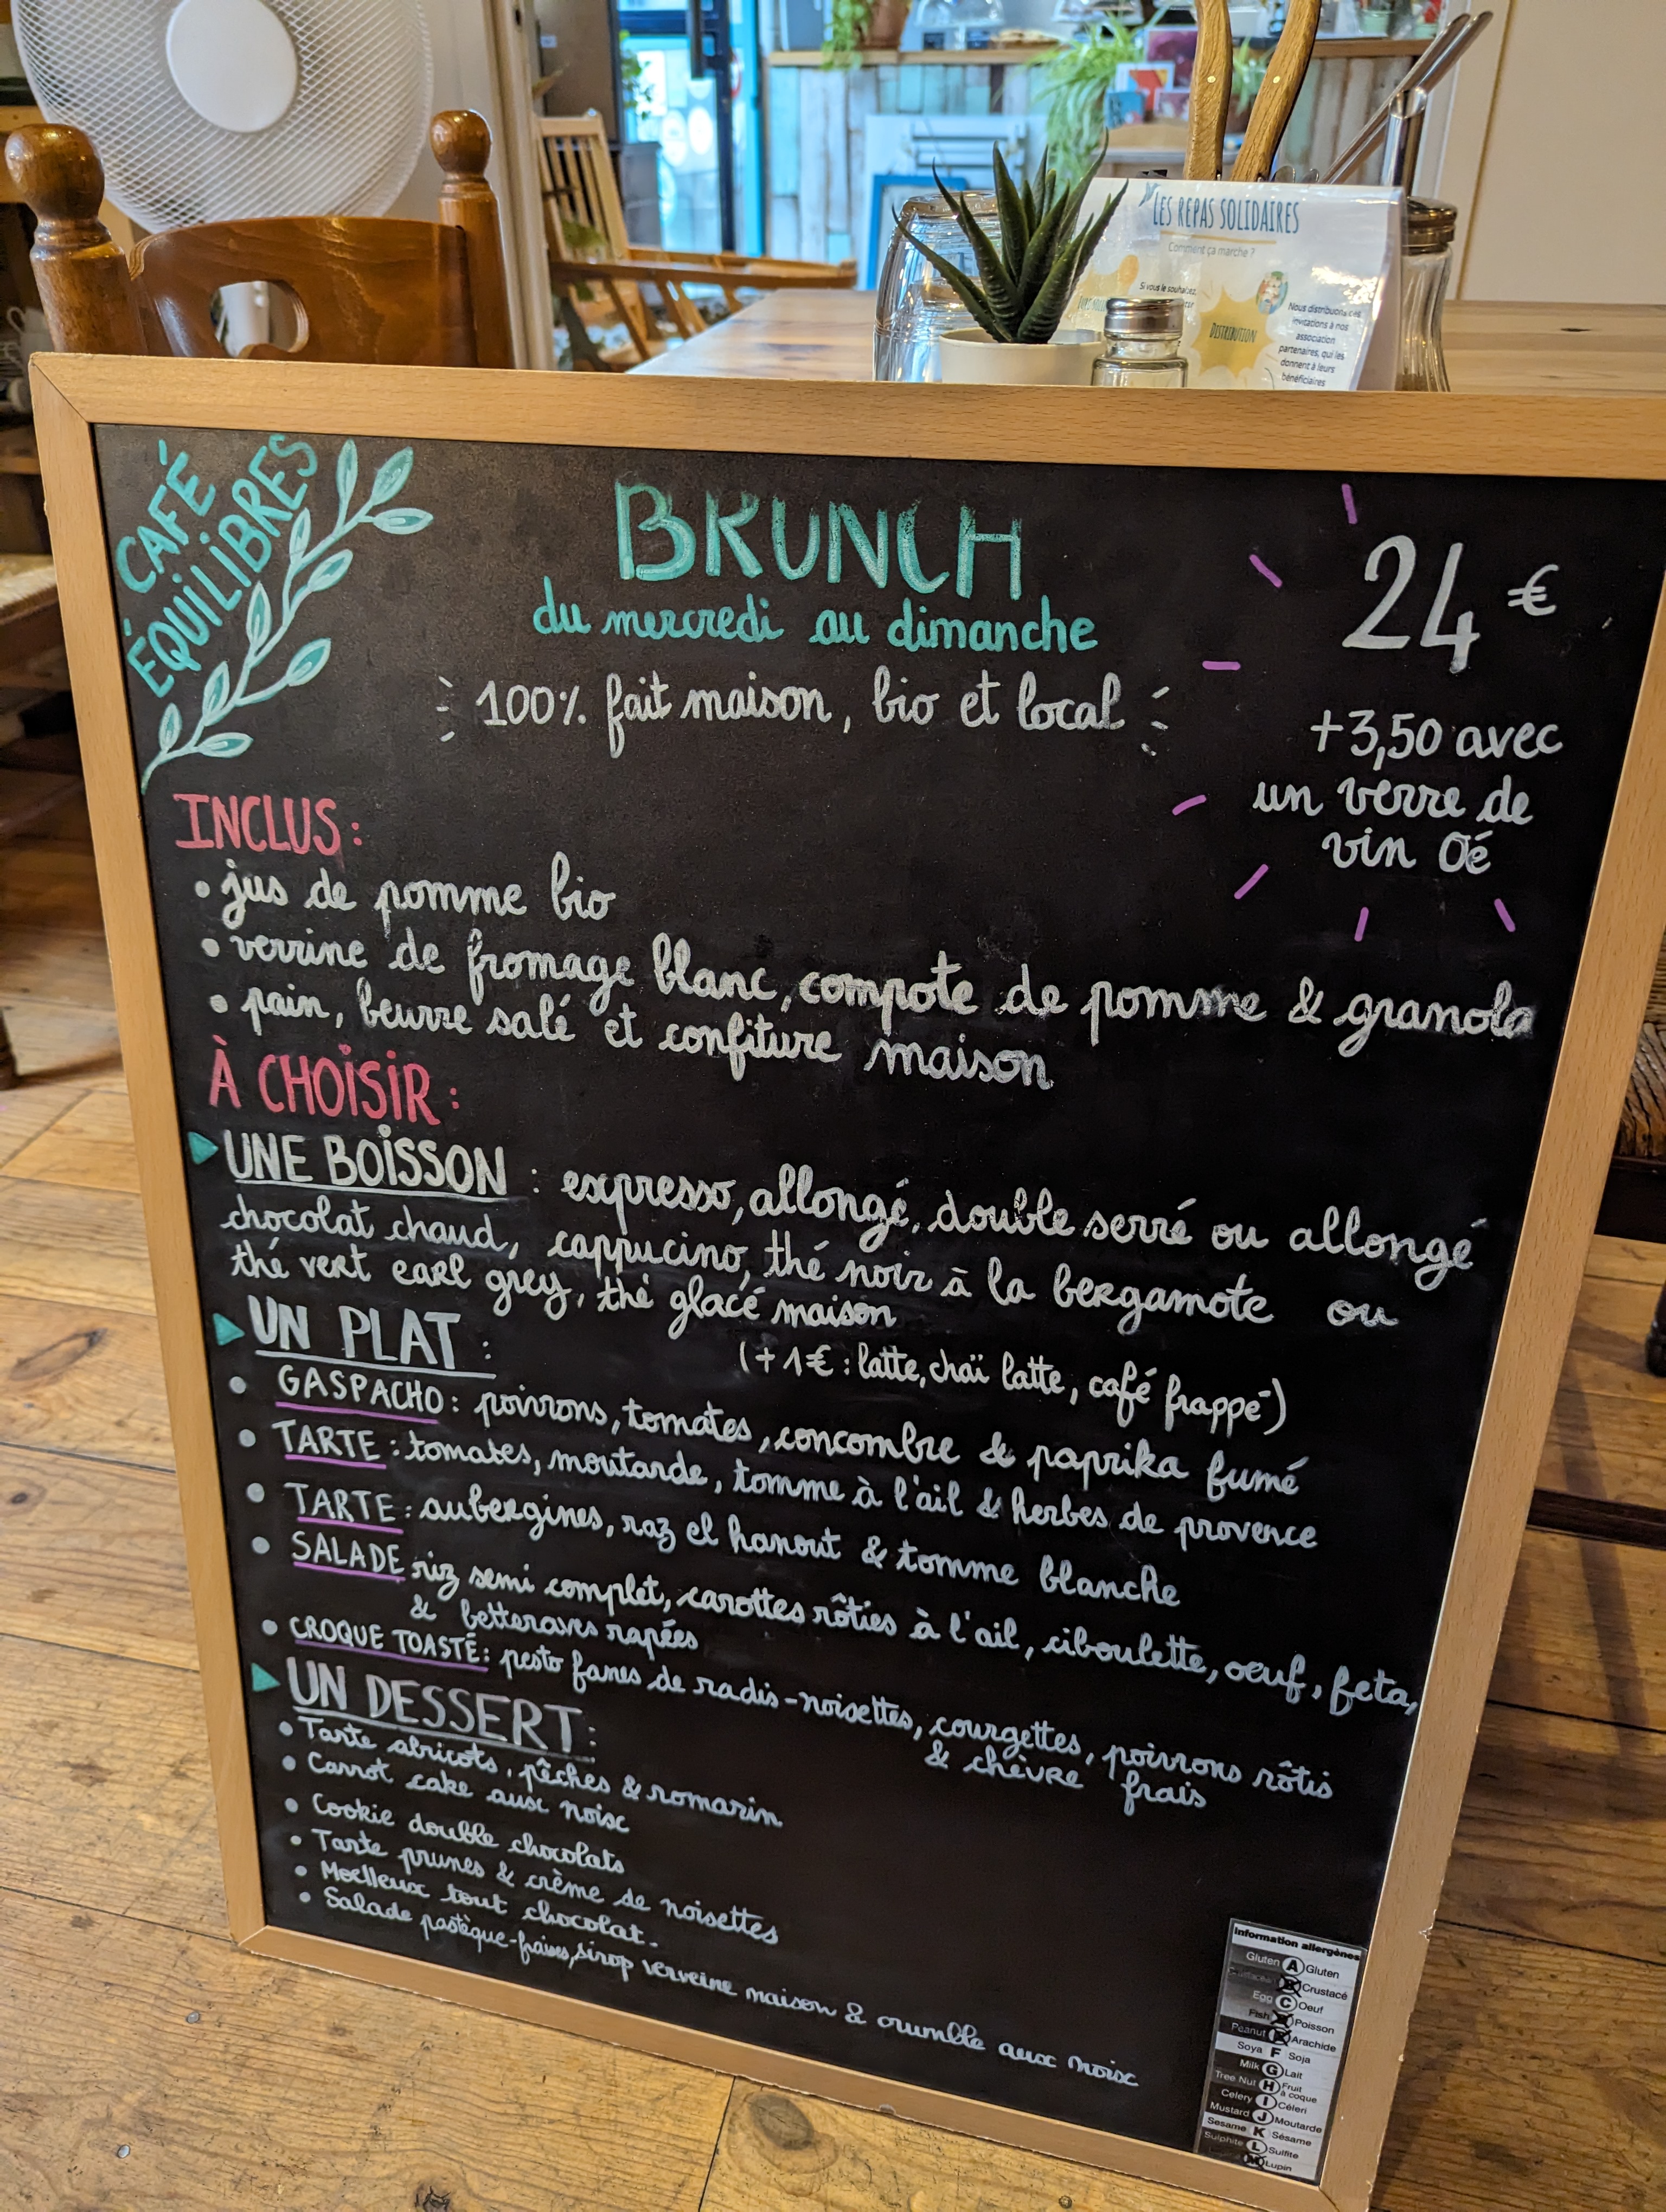 LES REPAS SOLIDAIRES
Comment ça marche ?
Si vous le souhaitez,
DISTRIBUTION
Nous distribuons ces
invitations à nos
association
partenaires, qui les
donnent à leurs
bénéficiaires
CAFÉ
ÉQUILIBRES
BRUNCH
du mercredi au dimanche
100% fait maison, bio et local
24 €
+3,50 avec
un verre de
vin Oé
INCLUS:
• jus de pomme bio
• verrine de fromage blanc, compote de pomme & granola
• pain, beurre salé et confiture maison
À CHOISIR:
UNE BOISSON : espresso, allongé, double serré ou allongé
chocolat chaud, cappucino, thé noir à la bergamote ou
thé vert earl grey, thé glacé maison
(+1€: latte, chaï latte, café frappé)
UN PLAT :
• GASPACHO: poivrons, tomates, concombre & paprika fumé
• TARTE : tomates, moutarde, tomme à l'ail & herbes de provence
• TARTE : aubergines, raz el hanout & tomme blanche
• SALADE riz semi complet, carottes rôties à l'ail, ciboulette, oeuf, feta,
& betteraves rapées
• CROQUE TOASTÉ: pesto fanes de radis-noisettes, courgettes, poivrons rôtis
& chèvre frais
UN DESSERT:
• Tarte abricots, pêches & romarin
• Carrot cake aux noix
• Cookie double chocolats
• Tarte prunes & crème de noisettes
• Moelleux tout chocolat.
• Salade pastèque-fraises, sirop verveine maison & crumble aux noix
Information allergènes
Gluten A Gluten
Crustacé
Egg C Oeuf
Fish Poisson
Peanut Arachide
Soya F Soja
Milk G Lait
Tree Nut H Fruit à coque
Celery I Céleri
Mustard J Moutarde
Sesame K Sésame
Sulphite L Sulfite
Lupin